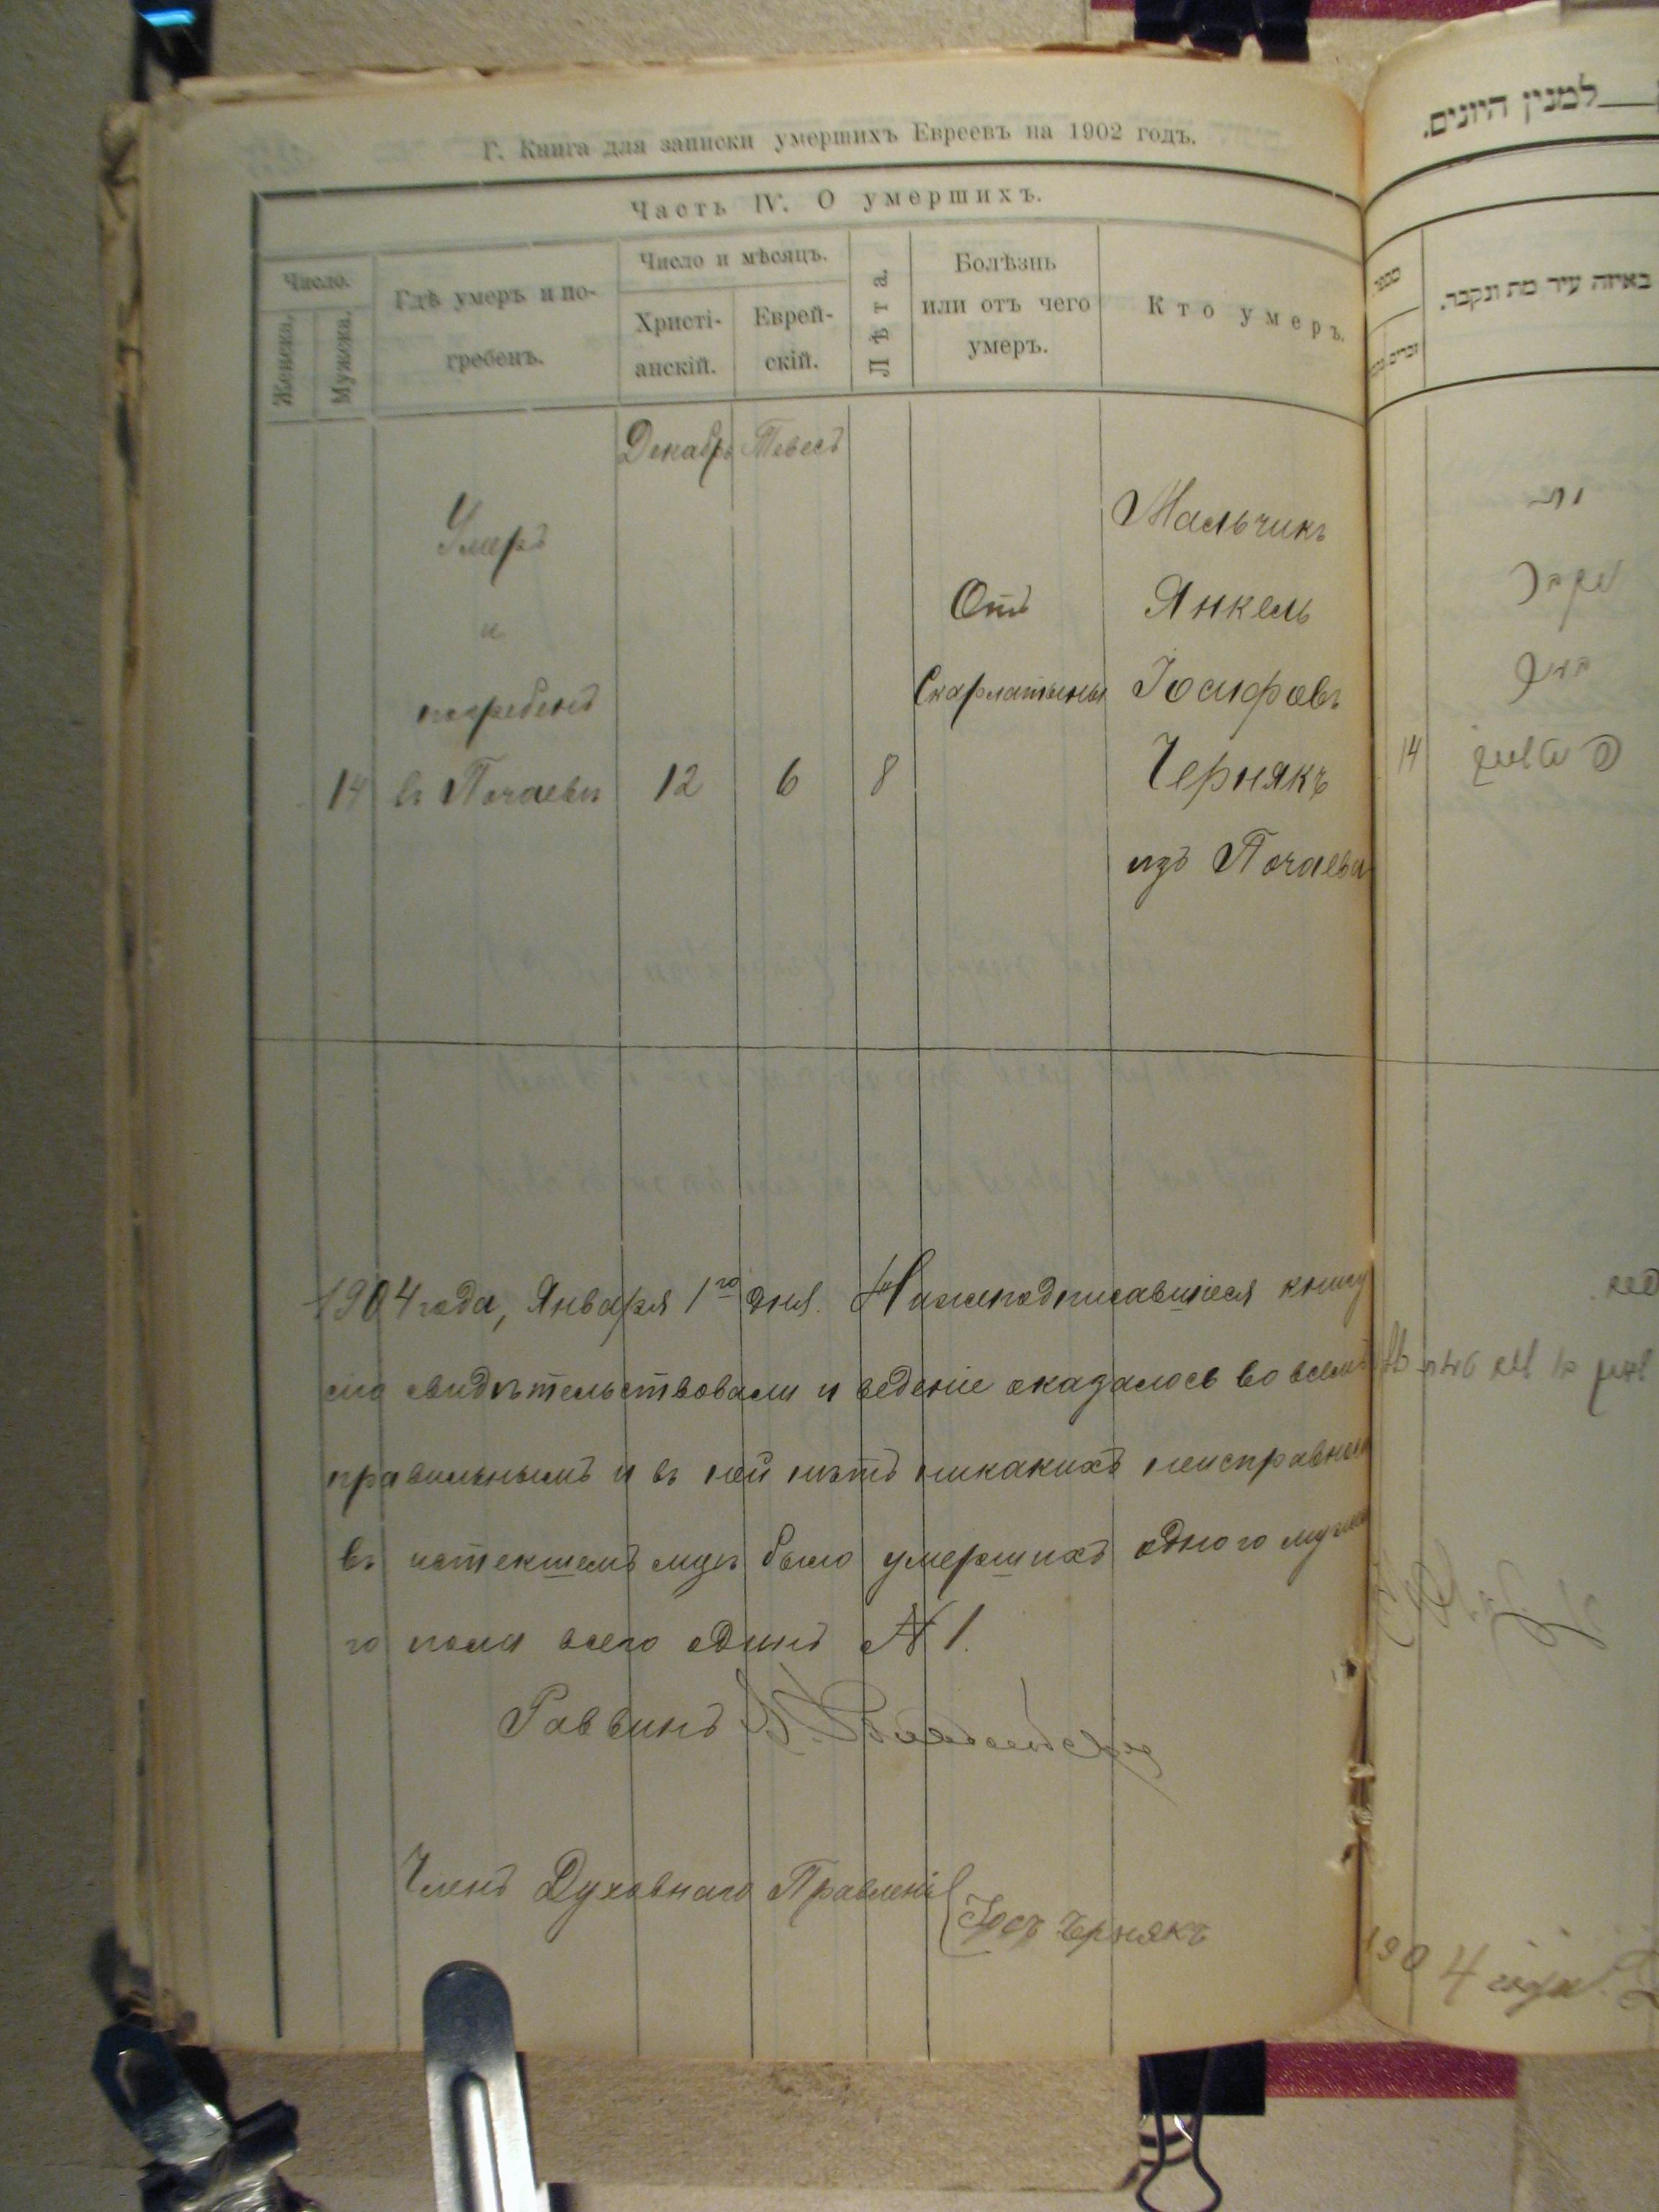 Г. Книга для записки умершихъ Евреевъ на 1902 годъ.
Часть IV. О умершихъ.
Число.
Женска.
Мужска.
Гдѣ умеръ и по-
гребенъ.
Число и мѣсяцъ.
Христі-
анскій.
Еврей-
скій.
Лѣта.
Болѣзнь
или отъ чего
умеръ.
Кто умеръ.
Декабрь Тевесъ
Умеръ
и
погребенъ
14 въ Почаевѣ 12 6 8
Отъ
Скарлатины
Мальчикъ
Янкель
Іосифовъ
Чернякъ
изъ Почаева
1904 года, Января 1го дня. Нижеподписавшіеся книгу
сію свидѣтельствовали и веденіе оказалось во всемъ
правильнымъ и въ ней нѣтъ никакихъ неисправн
въ истекшемъ мцѣ было умершихъ одного мужс
го пола всего одинъ № 1.
Раввинъ
Членъ Духовнаго Правленія
Іосъ Чернякъ
למנין היונים.
באיזה עיר מת ונקבר.
14
1904 года